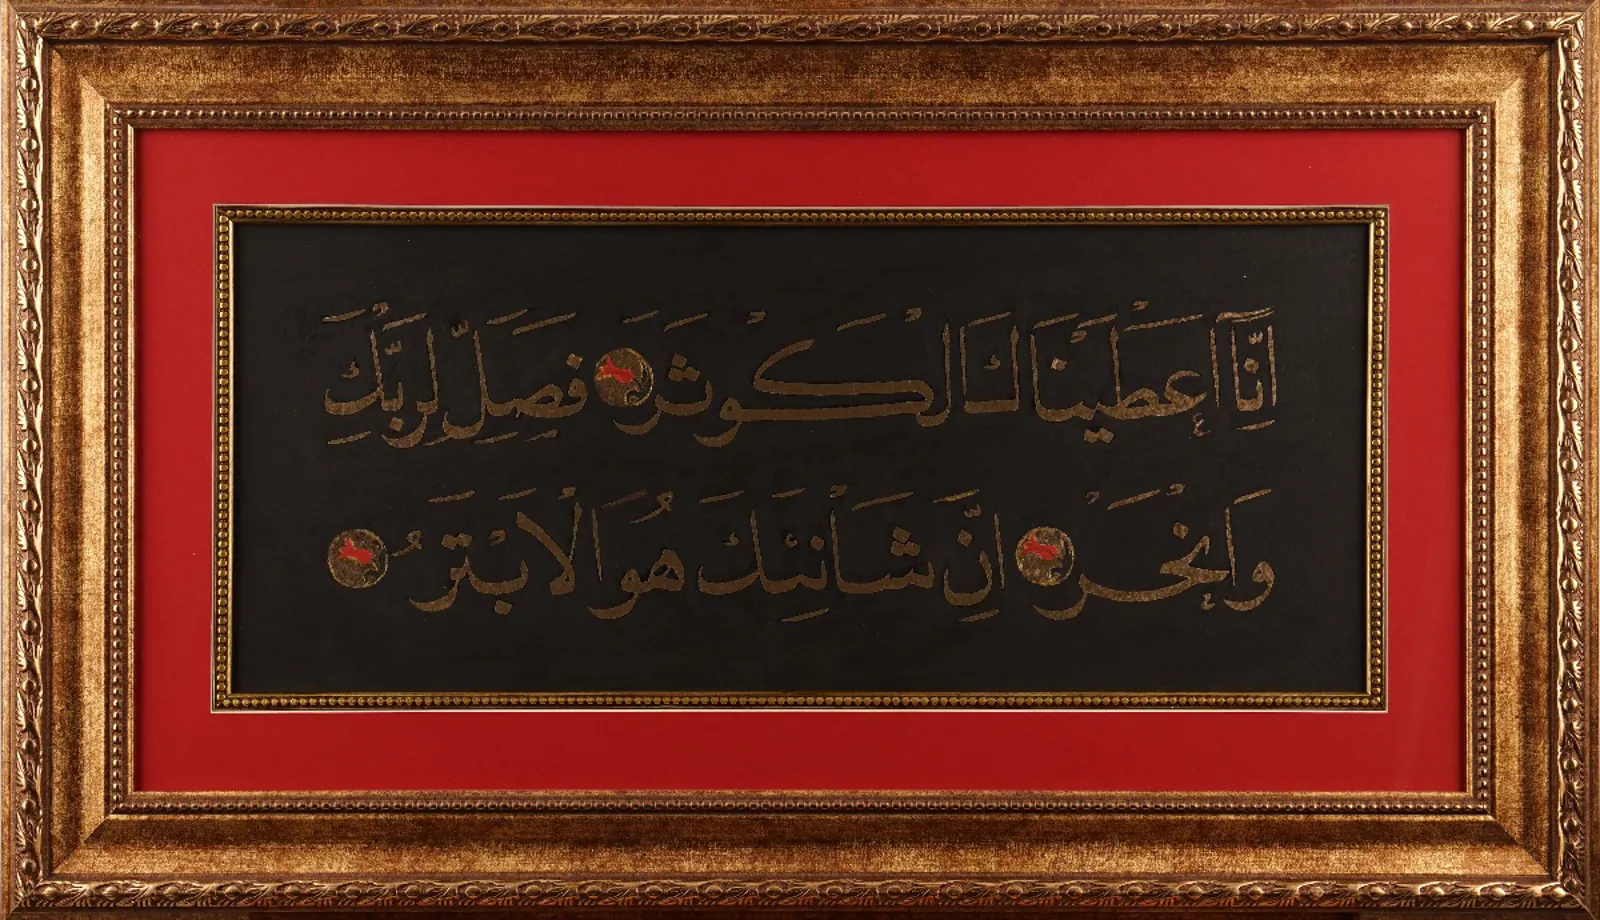 اِنَّٓا اَعْطَيْنَاكَ الْكَوْثَرَ فَصَلِّ لِرَبِّكَ
وَانْحَرْ اِنَّ شَانِئَكَ هُوَ الْاَبْتَرُ